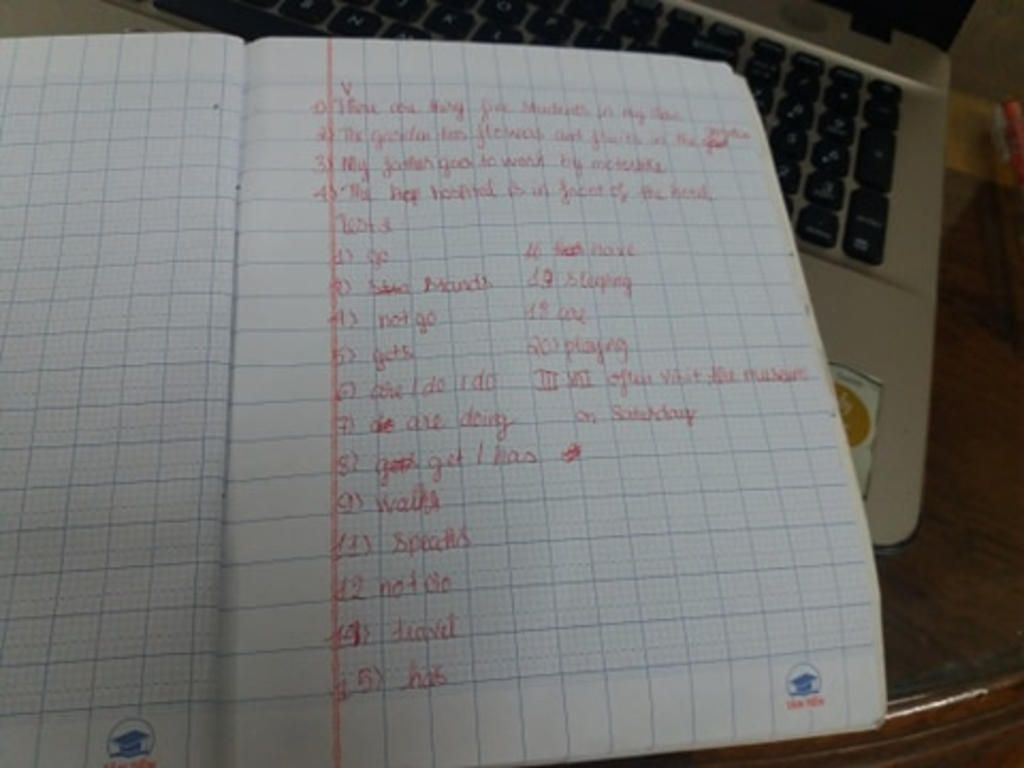 V
1) There are thirty five students in my class
2) The garden has flowers and fruits in the
3) My father goes to work by motorbike
4) The hospital is in front of the hotel
Test 3
1) go
2) stands
4) not go
5) gets
6) are / do / do
7) are doing
8) get / has
9) walks
11) speaks
12 not do
14) travel
15) has
have
19 sleeping
18 are
20) playing
III VII often visit the museum
on Saturday
TÂN TIẾN
TÂN TIẾN